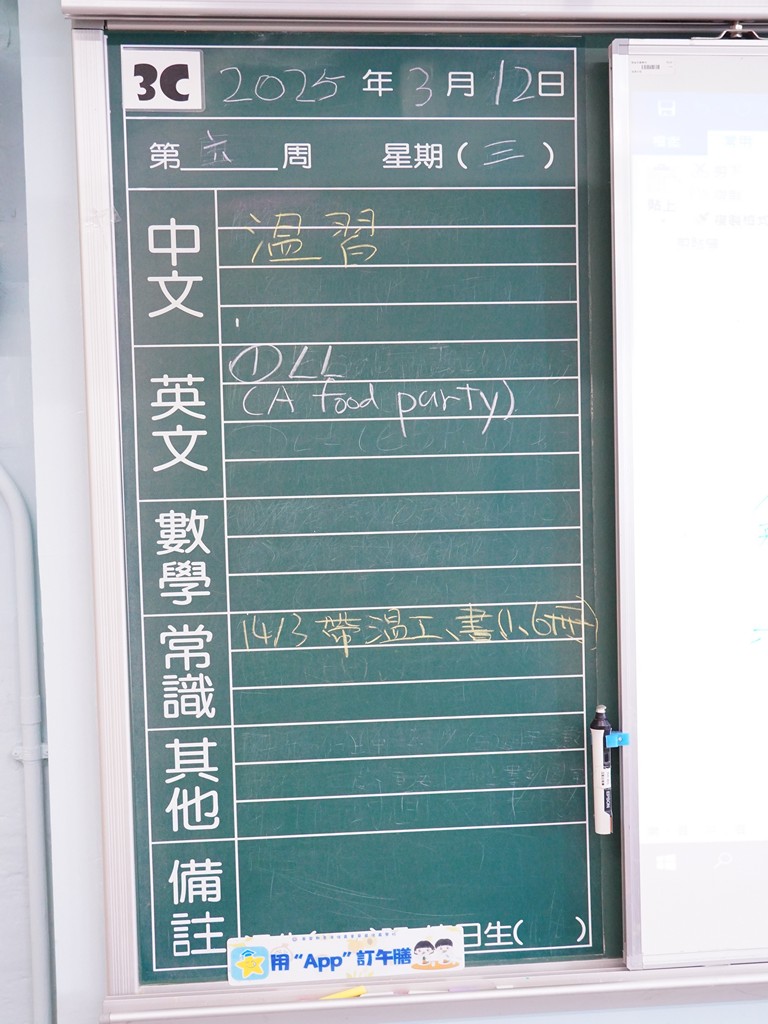 3C 2025年3月12日
第 周 星期(三)
中文
溫習
英文
① LL
(A food party)
數學
常識
14/3 帶溫工、書(1、6冊)
其他
備註
日生( )
用“App”訂午膳